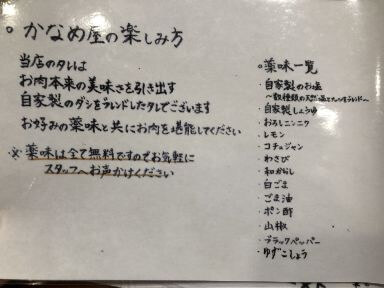 ○ かなめ屋の楽しみ方
当店のタレは
お肉本来の美味さを引き出す
自家製のダシをブレンドしたタレでございます
お好みの薬味と共にお肉を堪能してください
※薬味は全て無料ですのでお気軽に
スタッフへお声かけください
○薬味一覧
・自家製のお塩
〜数種類の天然塩をブレンド〜
・自家製しょうゆ
・おろしニンニク
・レモン
・コチュジャン
・わさび
・和がらし
・白ごま
・ごま油
・ポン酢
・山椒
・ブラックペッパー
・ゆずこしょう